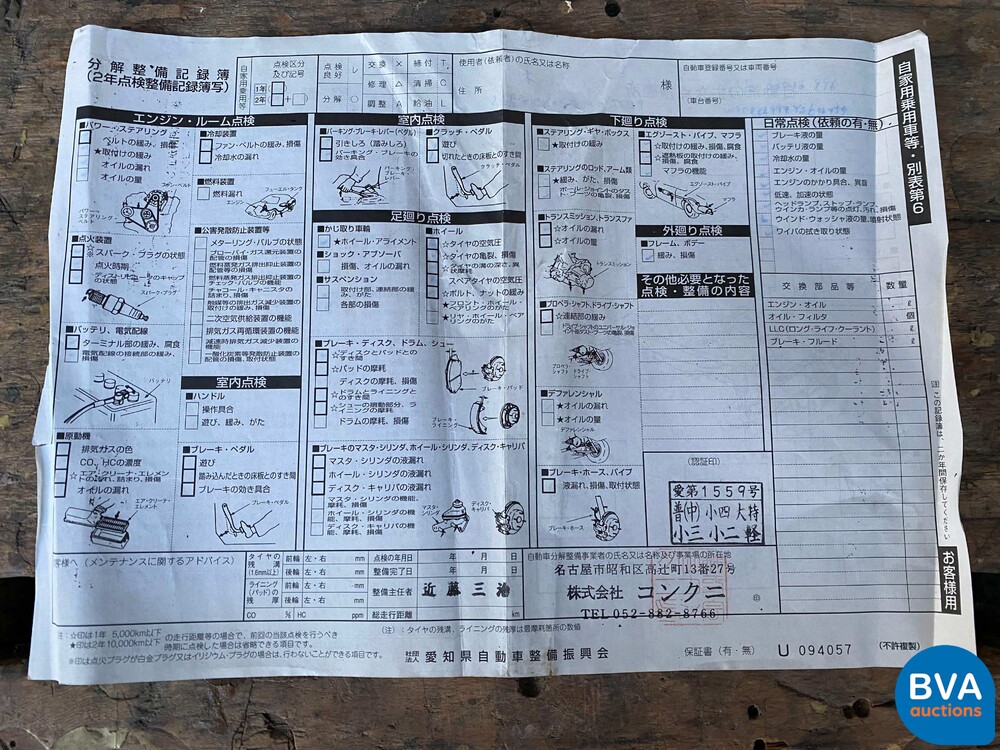 分解整備記録簿
(2年点検整備記録簿写)
自家用乗用等
点検区分
及び記号
1年
2年
点検良好 レ 交換 × 締付 T
修理 △ 清掃 C
分解 ○ 調整 A 給油 L
使用者(依頼者)の氏名又は名称
様
住所
自動車登録番号又は車両番号
(車台番号)
自家用乗用車等・別表第6
エンジン・ルーム点検
■パワー・ステアリング
ベルトの緩み、損傷
★取付けの緩み
オイルの漏れ
オイルの量
ファン・ベルト
パワー・ステアリング・ベルト
■点火装置
☆※スパーク・プラグの状態
点火時期
スパーク・プラグ
■バッテリ、電気配線
ターミナル部の緩み、腐食
電気配線の接続部の緩み、損傷
バッテリ
■原動機
排気ガスの色
CO、HCの濃度
☆エア・クリーナ・エレメントの汚れ、詰まり、損傷
オイルの漏れ
エア・クリーナ・エレメント
■冷却装置
ファン・ベルトの緩み、損傷
冷却水の漏れ
■燃料装置
燃料漏れ
フューエル・タンク
エンジン
■公害発散防止装置等
メターリング・バルブの状態
ブローバイ・ガス還元装置の配管の損傷
燃料蒸発ガス排出抑止装置の配管等の損傷
燃料蒸発ガス排出抑止装置のチェック・バルブの機能
チャコール・キャニスタの詰まり、損傷
触媒等の排出ガス減少装置の取付けの緩み、損傷
二次空気供給装置の機能
排気ガス再循環装置の機能
減速時排気ガス減少装置の機能
一酸化炭素等発散防止装置の配管の損傷、取付状態
室内点検
■ハンドル
操作具合
遊び、緩み、がた
■ブレーキ・ペダル
遊び
踏み込んだときの床板とのすき間
ブレーキの効き具合
ブレーキ・ペダル
室内点検
■パーキング・ブレーキ・レバー(ペダル)
引きしろ(踏みしろ)
パーキング・ブレーキの効き具合
パーキング・ブレーキ・レバー
■クラッチ・ペダル
遊び
切れたときの床板とのすき間
クラッチ・ペダル
足廻り点検
■かじ取り車輪
★ホイール・アライメント
■ショック・アブソーバ
損傷、オイルの漏れ
■サスペンション
取付部、連結部の緩み、がた、損傷
各部の損傷
■ホイール
☆タイヤの空気圧
☆タイヤの亀裂、損傷
☆タイヤの溝の深さ、異状摩耗
スペアタイヤの空気圧
☆ボルト、ナットの緩み
★フロント・ホイール・ベアリングのがた
★リヤ・ホイール・ベアリングのがた
■ブレーキ・ディスク、ドラム、シュー
☆ディスクとパッドとのすき間
☆パッドの摩耗
ディスクの摩耗、損傷
☆ドラムとライニングとのすき間
☆シューの摺動部分、ライニングの摩耗
ドラムの摩耗、損傷
ブレーキ・パッド
ブレーキ・ライニング
■ブレーキのマスタ・シリンダ、ホイール・シリンダ、ディスク・キャリパ
マスタ・シリンダの液漏れ
ホイール・シリンダの液漏れ
ディスク・キャリパの液漏れ
マスタ・シリンダの機能、摩耗、損傷
ホイール・シリンダの機能、摩耗、損傷
ディスク・キャリパの機能、摩耗、損傷
マスタ・シリンダ
ディスク・キャリパ
下廻り点検
■ステアリング・ギヤ・ボックス
★取付けの緩み
■ステアリングのロッド、アーム類
★緩み、がた、損傷
ボール・ジョイントのダスト・ブーツの亀裂、損傷
■トランスミッション、トランスファ
☆オイルの漏れ
☆オイルの量
トランスミッション
■プロペラ・シャフト、ドライブ・シャフト
☆連結部の緩み
ドライブ・シャフトのユニバーサル・ジョイント部のダスト・ブーツの亀裂、損傷
プロペラ・シャフト
ドライブ・シャフト
■デファレンシャル
★オイルの漏れ
★オイルの量
デファレンシャル
■ブレーキ・ホース、パイプ
液漏れ、損傷、取付状態
ブレーキ・ホース
■エグゾースト・パイプ、マフラ
☆取付けの緩み、損傷、腐食
☆遮熱板の取付けの緩み、損傷、腐食
マフラの機能
エグゾースト・パイプ
マフラ
外廻り点検
■フレーム、ボデー
緩み、損傷
その他必要となった
点検・整備の内容
(認証印)
愛第1559号
普(中)小四大特
小三小二軽
日常点検(依頼の有・無)
ブレーキ液の量
バッテリ液の量
冷却水の量
エンジン・オイルの量
エンジンのかかり具合、異音
低速、加速の状態
ヘッドランプ、ストップ・ランプ、ウインカ・ランプ等の点灯、汚れ、損傷
ウインド・ウォッシャ液の量、噴射状態
ワイパの拭き取り状態
交換部品等 数量
エンジン・オイル ℓ
オイル・フィルタ 個
LLC(ロング・ライフ・クーラント) ℓ
ブレーキ・フルード ℓ
注 この記録簿は、二か年間保存してください。
お客様用
客様へ (メンテナンスに関するアドバイス)
タイヤの残溝(1.6mm以上) 前輪 左・右 mm
後輪 左・右 mm
ライニング(パッド)の残厚 前輪 左・右 mm
後輪 左・右 mm
CO % HC ppm
点検の年月日 年 月 日
整備完了日 年 月 日
整備主任者 近藤三治
総走行距離 km
自動車分解整備事業者の氏名又は名称及び事業場の所在地
名古屋市昭和区高辻町13番27号
株式会社 コンクニ 印
TEL 052-882-8766
注:☆印は1年 5,000km以下
★印は2年10,000km以下 の走行距離等の場合で、前回の当該点検を行うべき時期に点検した場合は省略できる項目です。
※印は点火プラグが白金プラグ又はイリジウム・プラグの場合は、行わないことができる項目です。
(注):タイヤの残溝、ライニングの残厚は最摩耗箇所の数値
社団法人 愛知県自動車整備振興会
保証書(有・無) U 094057 (不許複製)
BVA
auctions